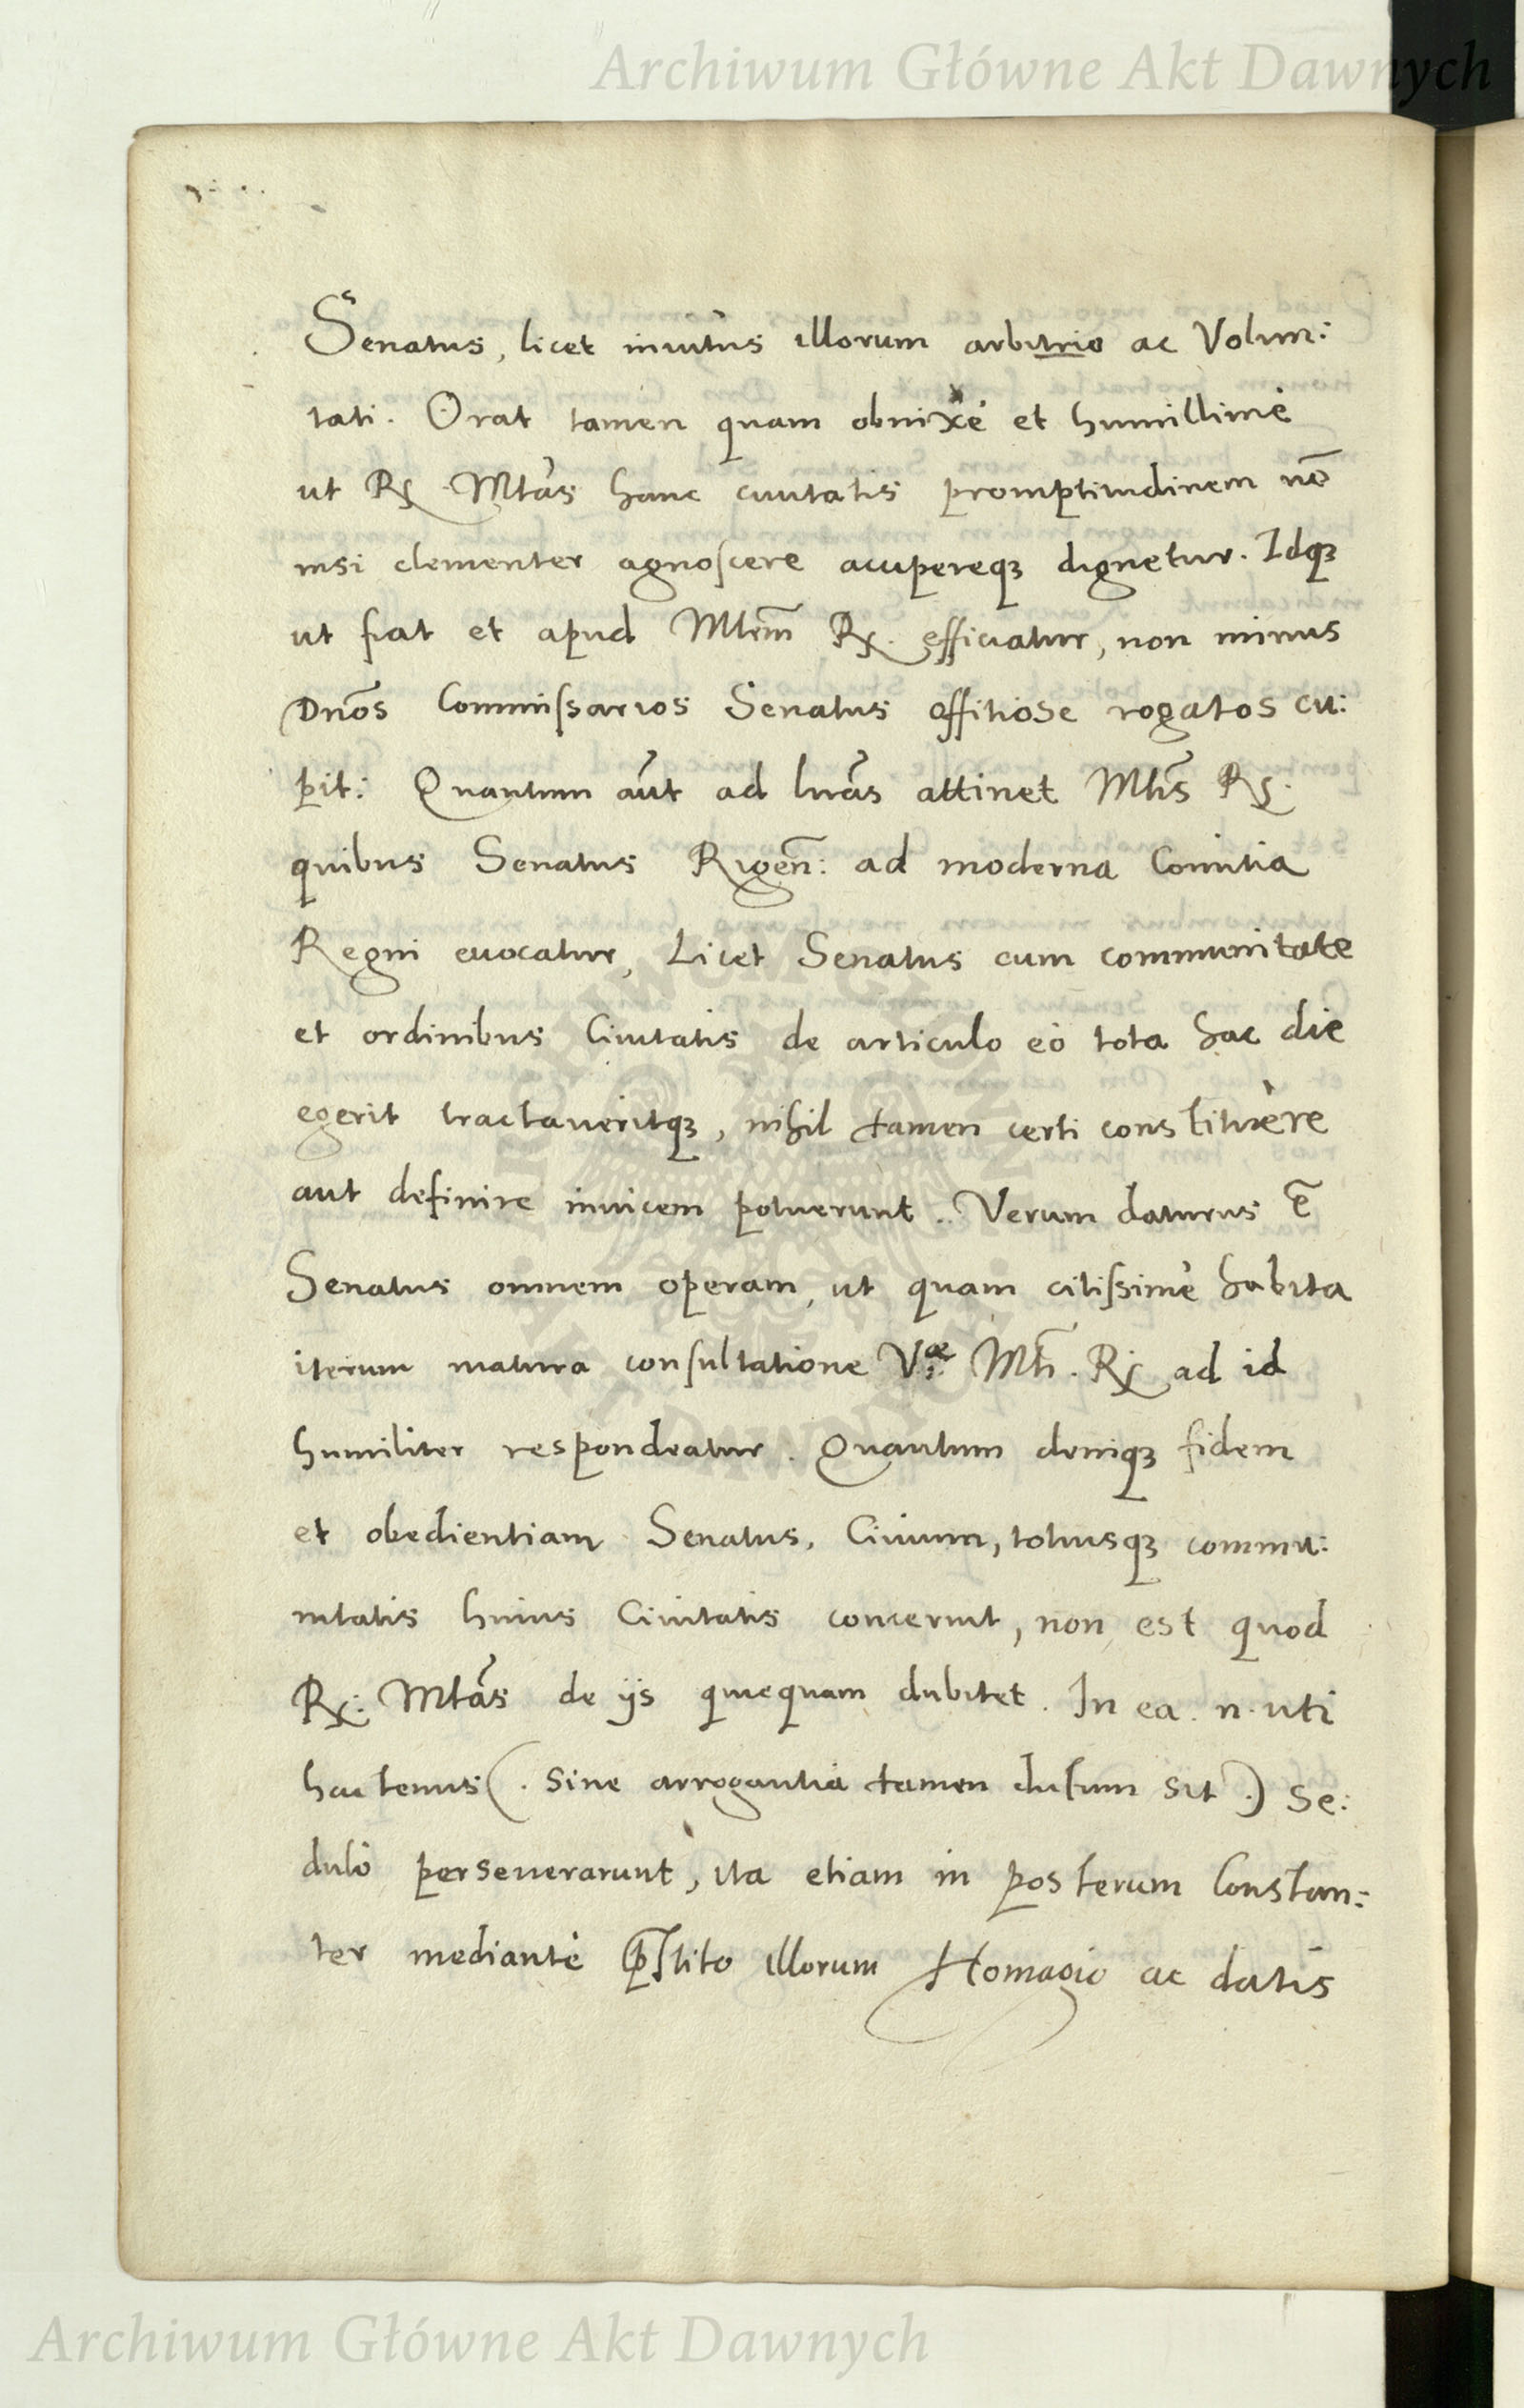 Archiwum Główne Akt Dawnych
Senatus, licet inuitus illorum arbitrio ac Volun:
tati. Orat tamen quam obnixè et humillimè
ut Rx Mtas hanc ciuitatis promptitudinem nõ
nisi clementer agnoscere accipereqꝫ dignetur. Idqꝫ
ut fiat et apud Mtem̃ Rx. efficiatur, non minus
Dños Commissarios Senatus offitiose rogatos cu:
pit: Quantum aũt ad lr̃as attinet Mtis̃ Rx.
quibus Senatus Rigeñ: ad moderna Comitia
Regni euocatur, Licet Senatus cum communitate
et ordinibus Ciuitatis de articulo eò tota hac die
egerit tractaueritqꝫ, nihil tamen certi constituère
aut definire inuicem potuerunt. Verum daturus ẽ
Senatus omnem operam, ut quam citissimè habita
iterum matura consultatione V.ræ Mti. Rx ad id
humiliter respondeatur. Quantum deniqꝫ fidem
et obedientiam Senatus, Ciuium, totiusqꝫ commu:
nitatis huius Ciuitatis concernit, non est quod
Rx: Mtãs de ijs quicquam dubitet. In ea. n. uti
hactenus (. sine arrogantia tamen dictum sit .) se:
dulò perseuerarunt, ita etiam in posterum Constan:
ter mediantè p̃stito illorum Homagio ac datis
Archiwum Główne Akt Dawnych